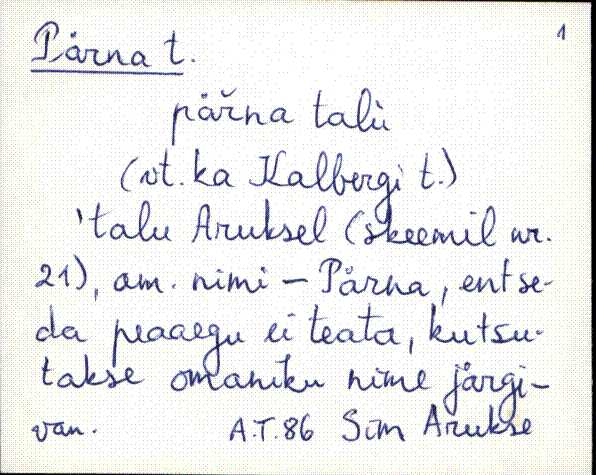 1
Pärna t.
päřna talù
(vt. ka Kalbergi t.)
'talu Aruksel (skeemil nr.
21), am. nimi – Pärna, ent se-
da peaaegu ei teata, kutsu-
takse omaniku nime järgi –
van. A.T. 86 Sim Arukse